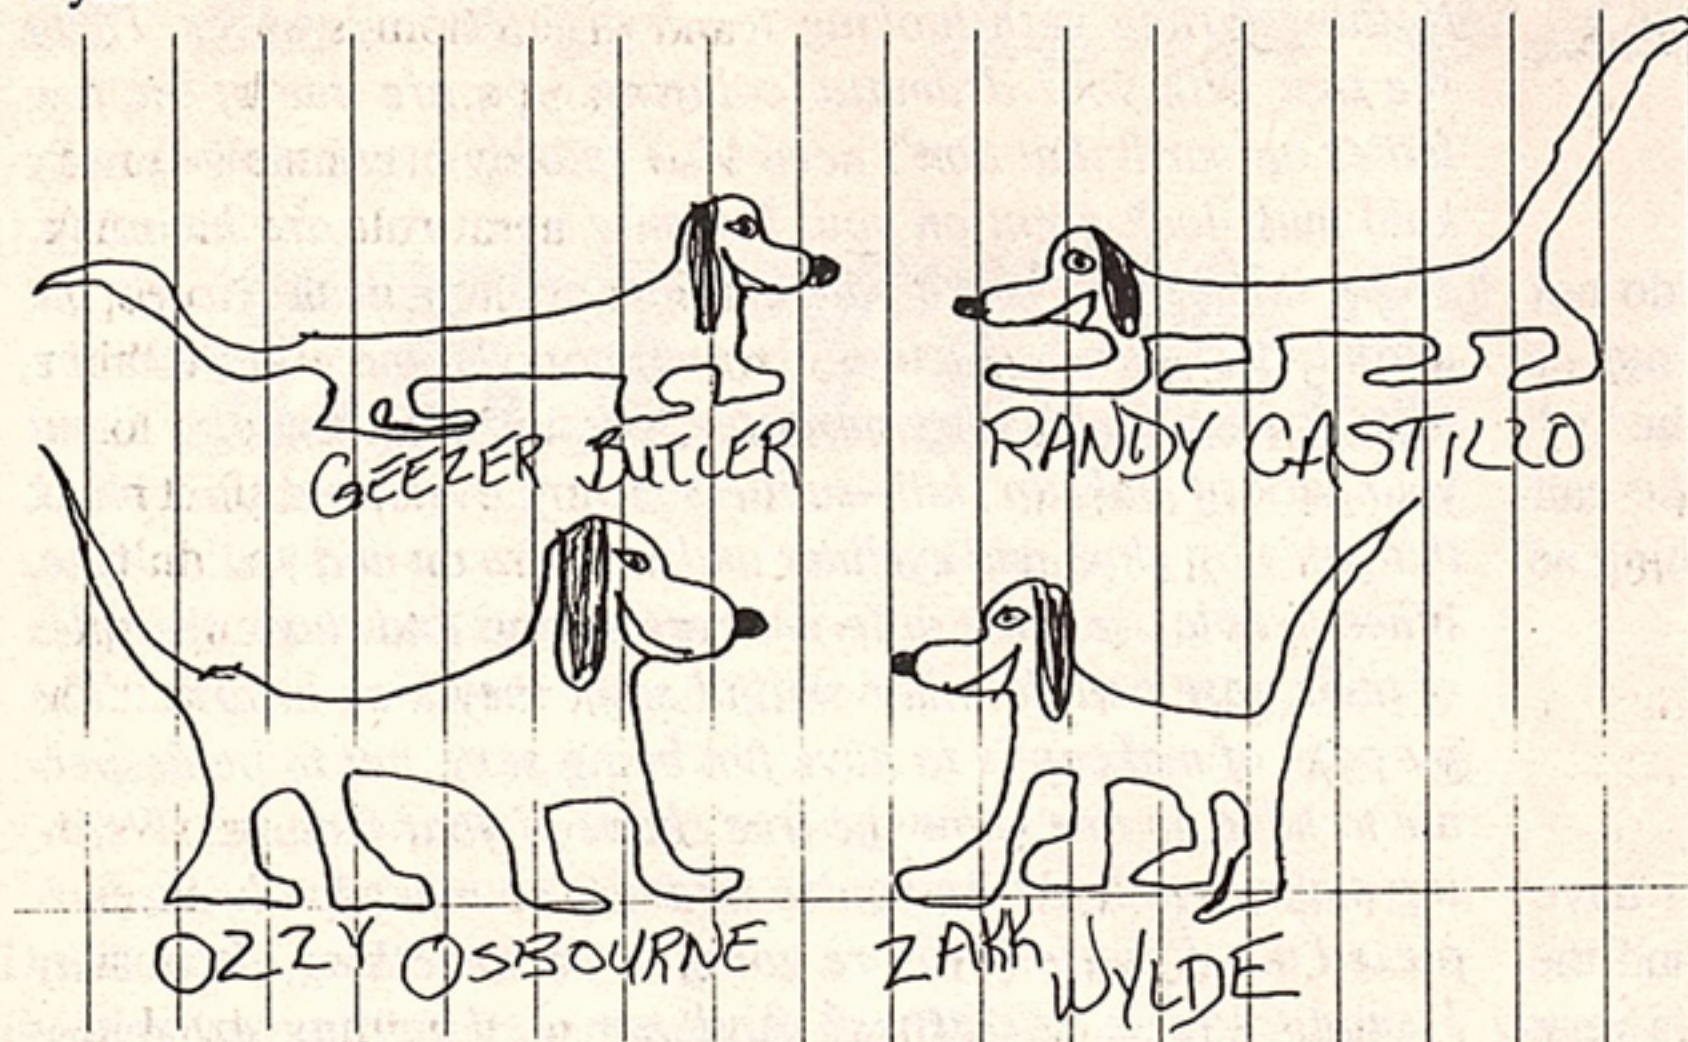 GEEZER BUTLER
RANDY CASTILLO
OZZY OSBOURNE
ZAKK WYLDE